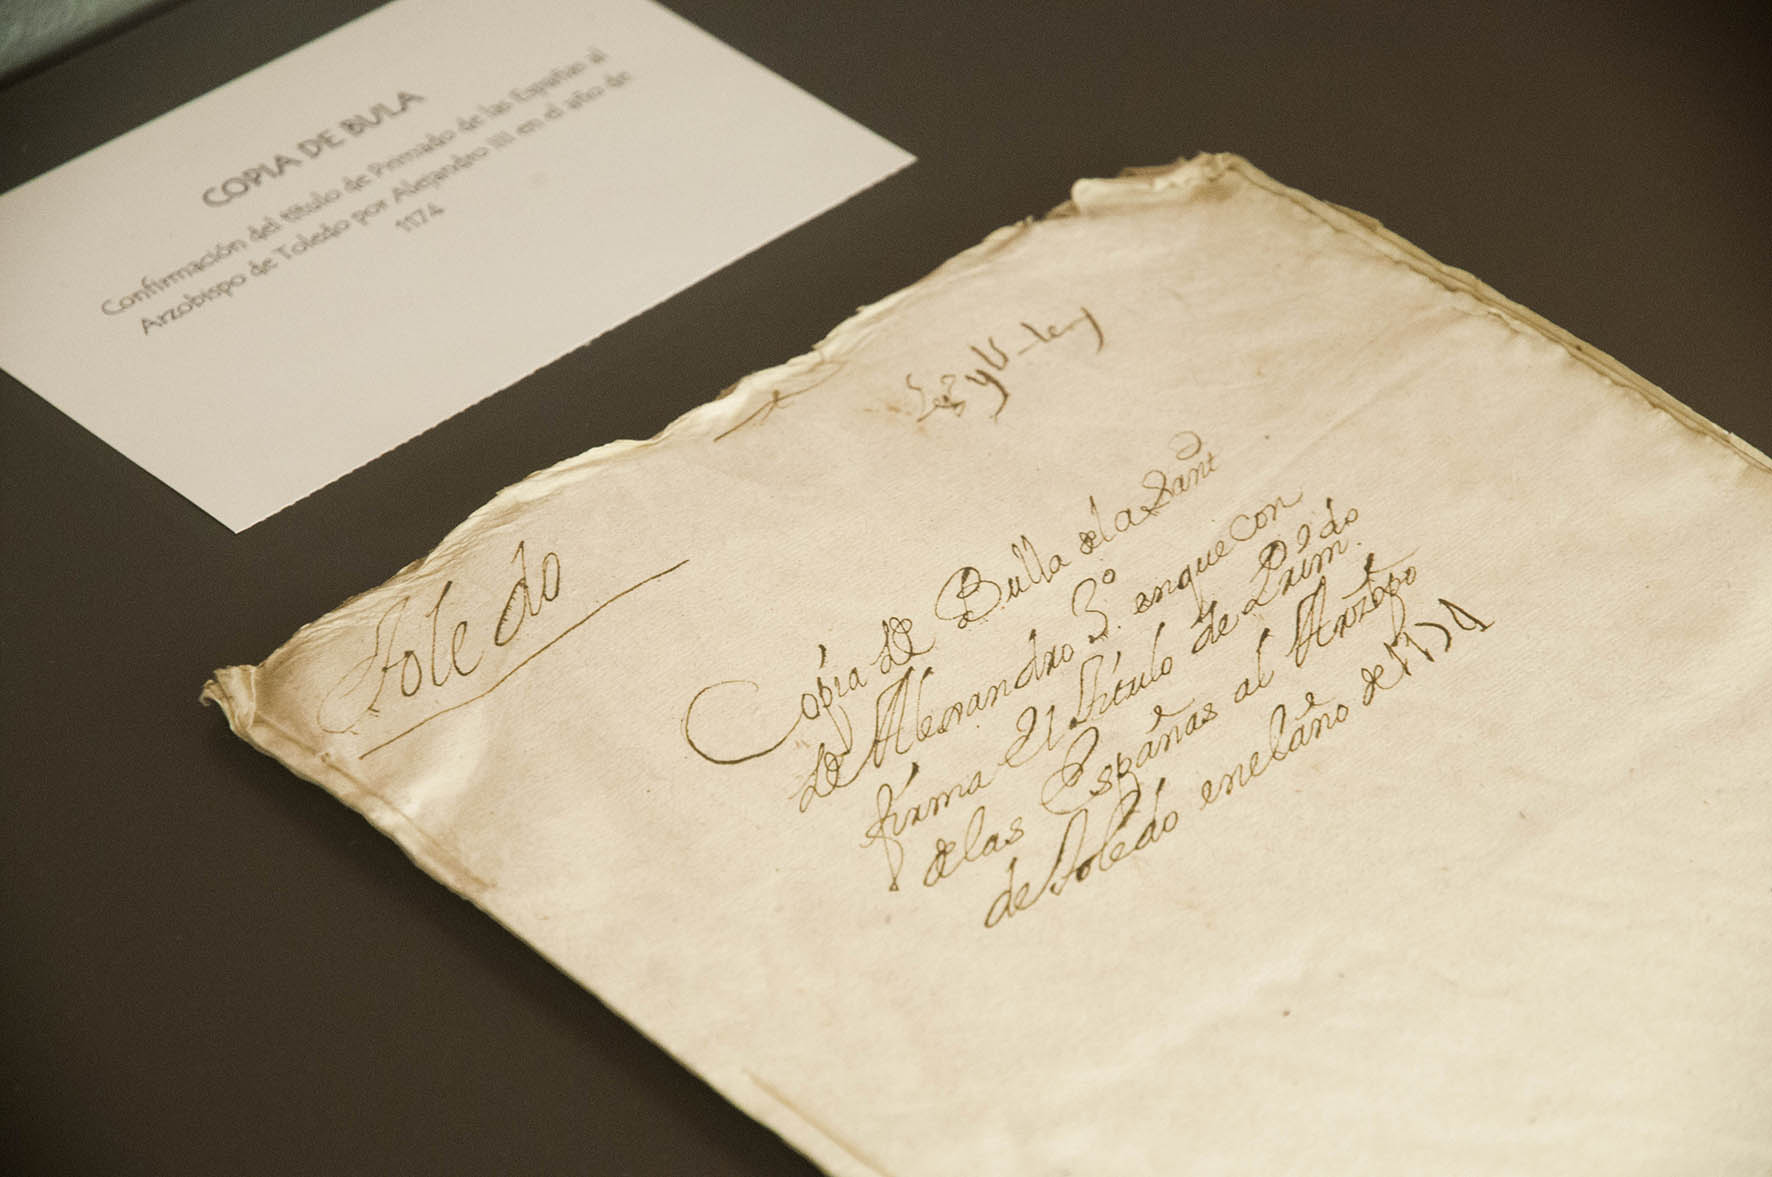 COPIA DE BULA
Confirmación del título de Primado de las Españas al
Arzobispo de Toledo por Alejandro III en el año de
1174
Toledo
Copia de Bulla de la Santd
de Alexandro 3.º en que con
firma el titulo de Prim.do
de las Españas al Arzbpo
de Toledo en el año de 1174